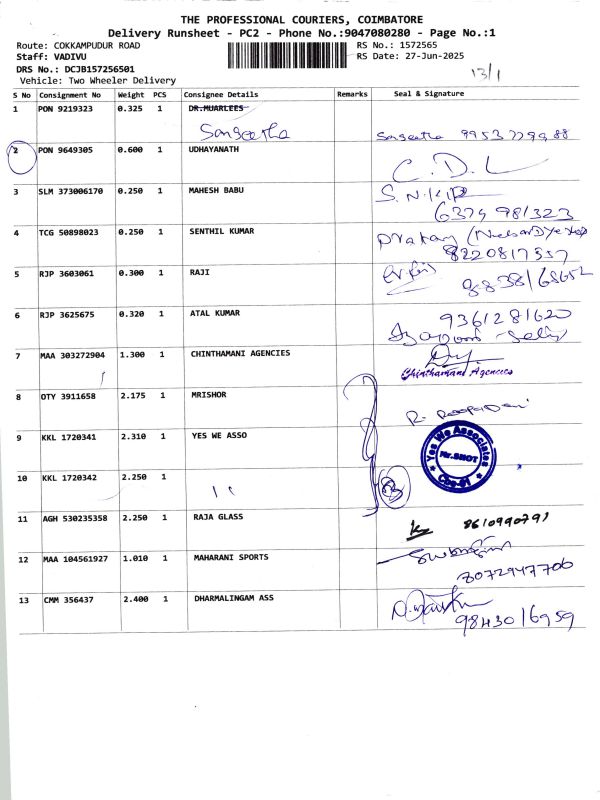 THE PROFESSIONAL COURIERS, COIMBATORE
Delivery Runsheet - PC2 - Phone No.:9047080280 - Page No.:1
Route: COKKAMPUDUR ROAD RS No.: 1572565
Staff: VADIVU RS Date: 27-Jun-2025
DRS No.: DCJB157256501
Vehicle: Two Wheeler Delivery 13/1
S No Consignment No Weight PCS Consignee Details Remarks Seal & Signature
1 PON 9219323 0.325 1 DR.MUARLEES
Sangeetha Sangeetha
2 PON 9649305 0.600 1 UDHAYANATH
C.D.L
3 SLM 373006170 0.250 1 MAHESH BABU
6374 981323
4 TCG 50898023 0.250 1 SENTHIL KUMAR
8220817357
5 RJP 3603061 0.300 1 RAJI
6 RJP 3625675 0.320 1 ATAL KUMAR 9361281620
7 MAA 303272904 1.300 1 CHINTHAMANI AGENCIES
Chinthamani Agencies
8 OTY 3911658 2.175 1 MRISHOR
9 KKL 1720341 2.310 1 YES WE ASSO
Yes We Associates
Cbe-01
10 KKL 1720342 2.250 1
11 AGH 530235358 2.250 1 RAJA GLASS 8610990791
12 MAA 104561927 1.010 1 MAHARANI SPORTS
13 CMM 356437 2.400 1 DHARMALINGAM ASS
9843016959